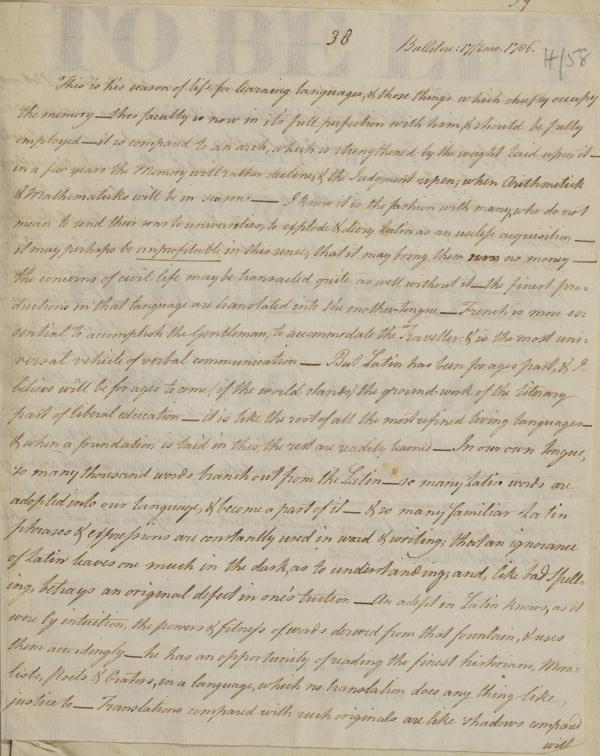 38
Ballitore: 17/6mo. 1786.
4/58
This is his season of life for learning languages, & those things which chiefly occupy
the memory — this faculty is now in it's full perfection with him, & should be fully
employed — it is compared to an arch, which is strengthened by the weight laid upon it —
in a few years the Memory will rather decline, & the Judgment ripen; when Arithmetick
& Mathematicks will be in season — I know it is the fashion with many, who do not
mean to send their sons to universities, to explode & decry Latin as an useless acquisition —
it may perhaps be unprofitable in this sense, that it may bring them no money —
the concerns of civil life may be transacted quite as well without it — the finest pro-
ductions in that language are translated into the mother-tongue — French is more es-
sential to accomplish the Gentleman, to accommodate the Traveller, & is the most uni-
versal vehicle of verbal communication — But Latin has been for ages past, & I
believe will be for ages to come (if the world stands) the ground-work of the literary
part of liberal education — it is like the root of all the most refined living languages —
& when a foundation is laid in this, the rest are readily learned — In our own tongue,
so many thousand words branch out from the Latin — so many latin words are
adopted into our language, & become a part of it — & so many familiar Latin
phrases & expressions are constantly used in word & writing; that an ignorance
of Latin leaves one much in the dark, as to understanding; and, like bad spell-
ing, betrays an original defect in one's tuition — An adept in Latin knows, as it
were by intuition, the powers & fitness of words derived from that fountain, & uses
them accordingly — he has an opportunity of reading the finest historians, Mora-
lists, Poets & Orators, in a language, which no translation does any thing like
justice to — Translations compared with such originals are like shadows compared
with